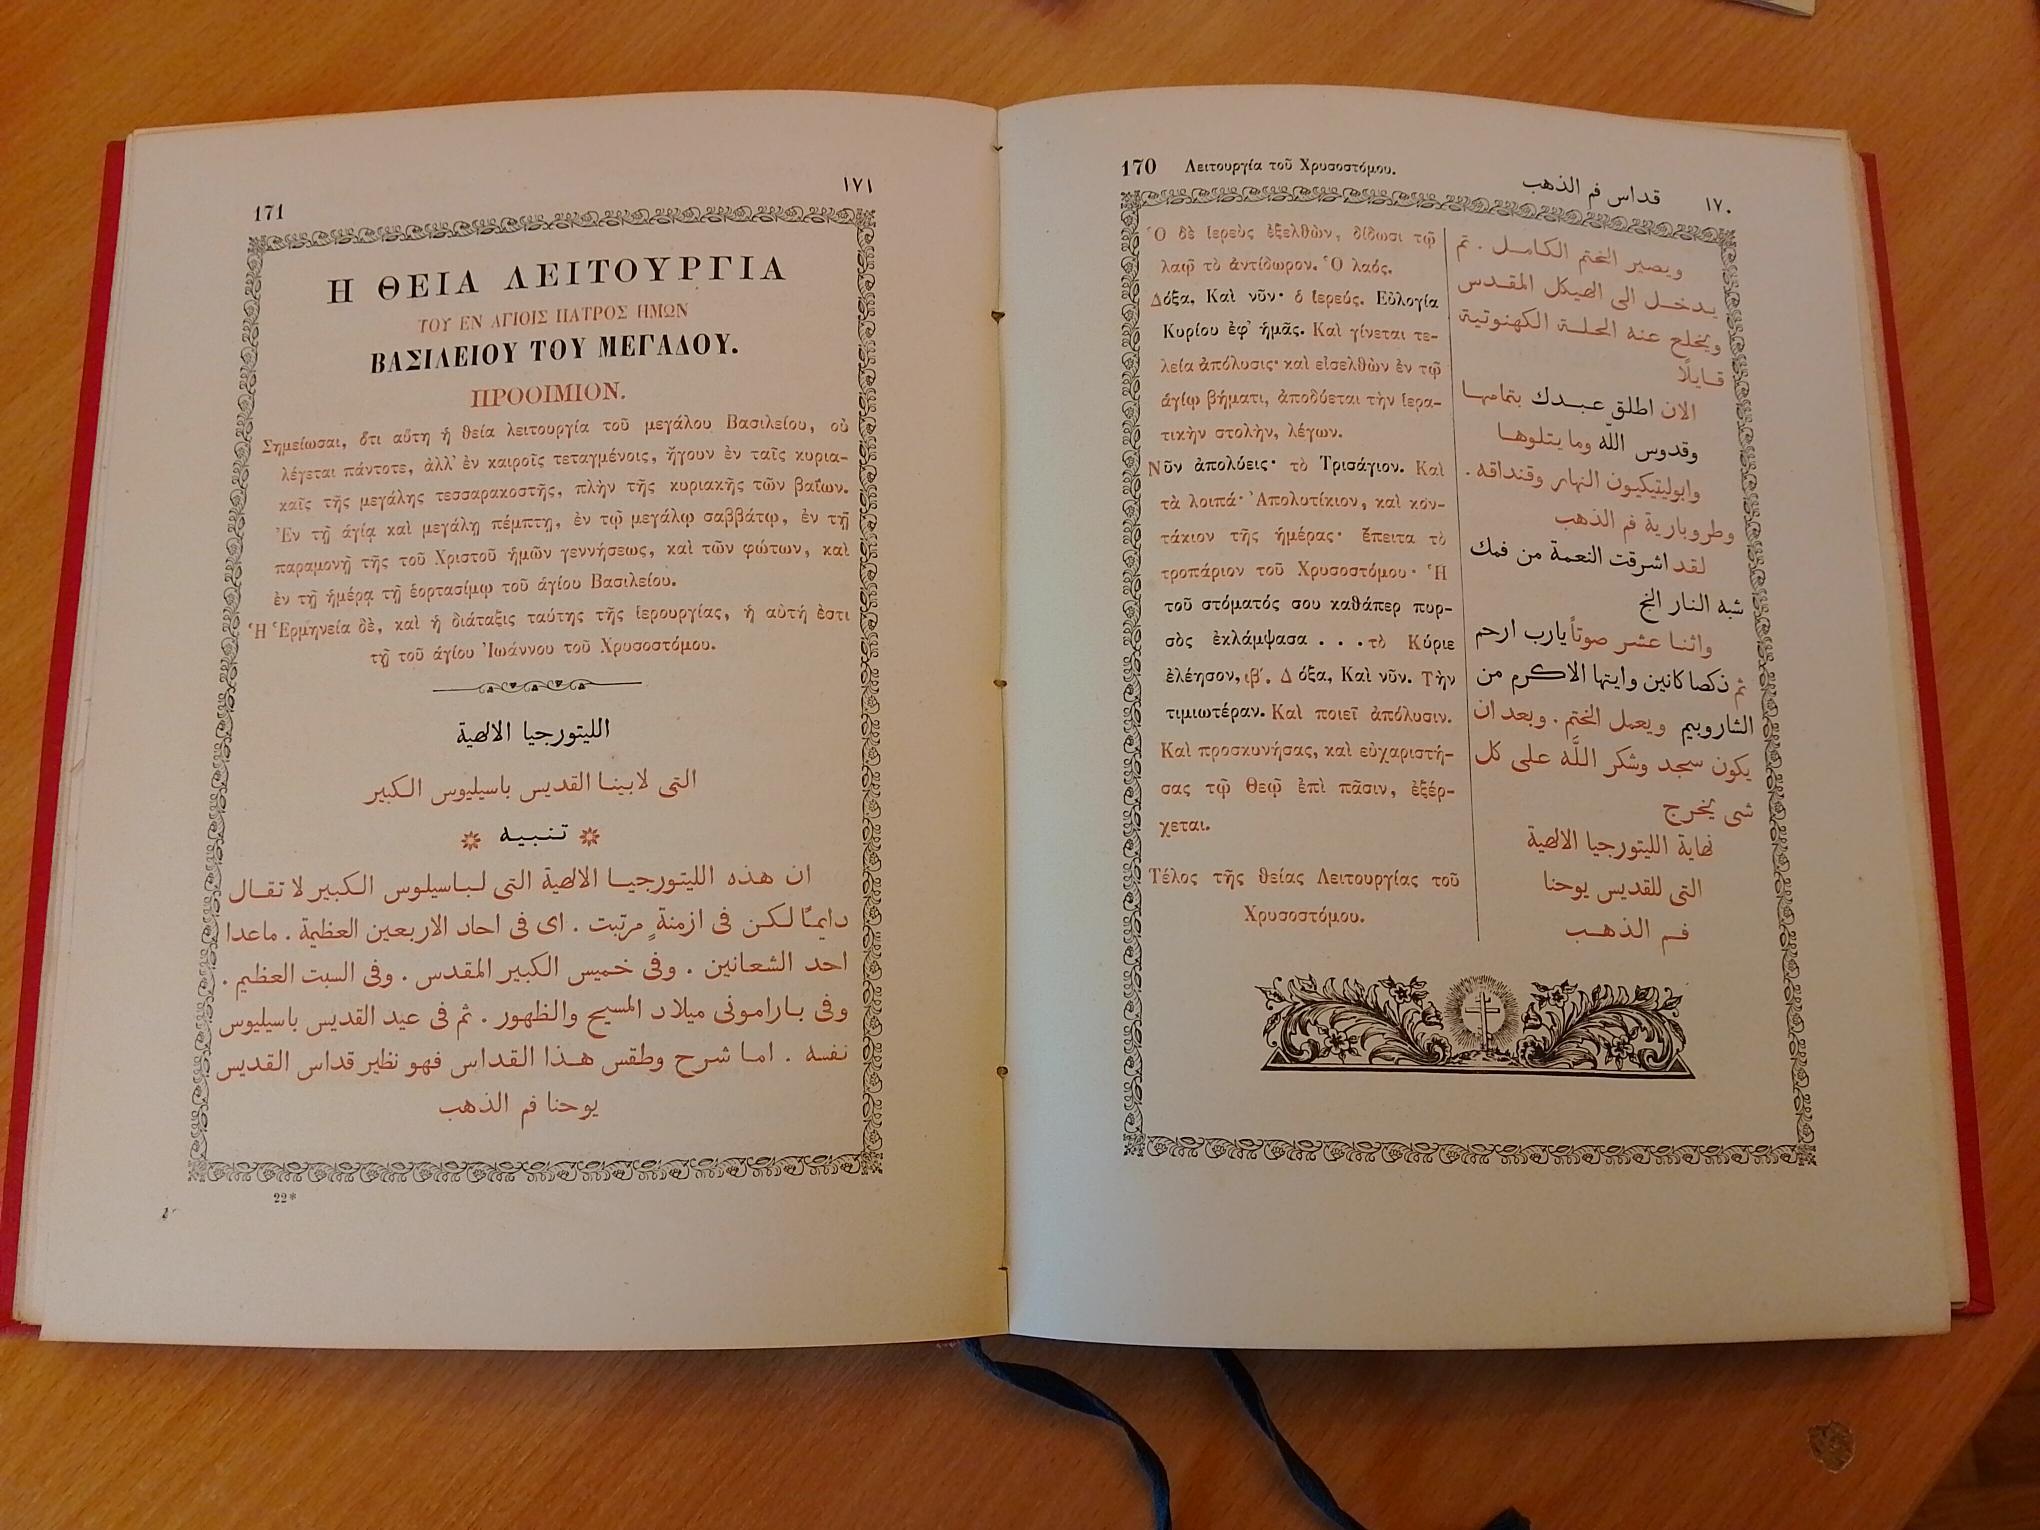 170 Λειτουργία τοῦ Χρυσοστόμου.
قداس فم الذهب ١٧٠
Ὁ δὲ ἱερεὺς ἐξελθὼν, δίδωσι τῷ
λαῷ τὸ ἀντίδωρον. Ὁ λαός.
Δόξα, Καὶ νῦν· ὁ ἱερεύς. Εὐλογία
Κυρίου ἐφ' ἡμᾶς. Καὶ γίνεται τε-
λεία ἀπόλυσις· καὶ εἰσελθὼν ἐν τῷ
ἁγίῳ βήματι, ἀποδύεται τὴν ἱερα-
τικὴν στολὴν, λέγων.
Νῦν ἀπολύεις· τὸ Τρισάγιον. Καὶ
τὰ λοιπά· Ἀπολυτίκιον, καὶ κον-
τάκιον τῆς ἡμέρας· ἔπειτα τὸ
τροπάριον τοῦ Χρυσοστόμου· Ἡ
τοῦ στόματός σου καθάπερ πυρ-
σὸς ἐκλάμψασα . . . τὸ Κύριε
ἐλέησον, ιβ΄. Δόξα, Καὶ νῦν. Τὴν
τιμιωτέραν. Καὶ ποιεῖ ἀπόλυσιν.
Καὶ προσκυνήσας, καὶ εὐχαριστή-
σας τῷ Θεῷ ἐπὶ πᾶσιν, ἐξέρ-
χεται.
Τέλος τῆς θείας Λειτουργίας τοῦ
Χρυσοστόμου.
ويصير الختم الكامل . ثم
يدخل الى الهيكل المقدس
ويخلع عنه الحلة الكهنوتية
قايلًا
الان اطلق عبدك بتمامها
وقدوس الله وما يتلوها
وابوليتيكيون النهار وقنداقه .
وطروبارية فم الذهب
لقد اشرقت النعمة من فمك
شبه النار الخ
واثنا عشر صوتاً يارب ارحم
ثم ذكصا كانين وايتها الاكرم من
الشاروبيم ويعمل الختم . وبعد ان
يكون سجد وشكر اللّه على كل
شى يخرج
نهاية الليتورجيا الالهية
التى للقديس يوحنا
فم الذهب
171 ١٧١
Η ΘΕΙΑ ΛΕΙΤΟΥΡΓΙΑ
ΤΟΥ ΕΝ ΑΓΙΟΙΣ ΠΑΤΡΟΣ ΗΜΩΝ
ΒΑΣΙΛΕΙΟΥ ΤΟΥ ΜΕΓΑΔΟΥ.
ΠΡΟΟΙΜΙΟΝ.
Σημείωσαι, ὅτι αὕτη ἡ θεία λειτουργία τοῦ μεγάλου Βασιλείου, οὐ
λέγεται πάντοτε, ἀλλ' ἐν καιροῖς τεταγμένοις, ἤγουν ἐν ταῖς κυρια-
καῖς τῆς μεγάλης τεσσαρακοστῆς, πλὴν τῆς κυριακῆς τῶν βαΐων.
Ἐν τῇ ἁγίᾳ καὶ μεγάλῃ πέμπτῃ, ἐν τῷ μεγάλῳ σαββάτῳ, ἐν τῇ
παραμονῇ τῆς τοῦ Χριστοῦ ἡμῶν γεννήσεως, καὶ τῶν φώτων, καὶ
ἐν τῇ ἡμέρᾳ τῇ ἑορτασίμῳ τοῦ ἁγίου Βασιλείου.
Ἡ Ἑρμηνεία δὲ, καὶ ἡ διάταξις ταύτης τῆς ἱερουργίας, ἡ αὐτή ἐστι
τῇ τοῦ ἁγίου Ἰωάννου τοῦ Χρυσοστόμου.
الليتورجيا الالهية
التى لابينا القديس باسيليوس الكبير
تنبيه
ان هذه الليتورجيا الالهية التى لباسيلوس الكبير لا تقال
دايمًا لكن فى ازمنةٍ مرتبت . اى فى احاد الاربعين العظيمة . ماعدا
احد الشعانين . وفى خميس الكبير المقدس . وفى السبت العظيم .
وفى بارامونى ميلاد المسيح والظهور . ثم فى عيد القديس باسيليوس
نفسه . اما شرح وطقس هذا القداس فهو نظير قداس القديس
يوحنا فم الذهب
22*